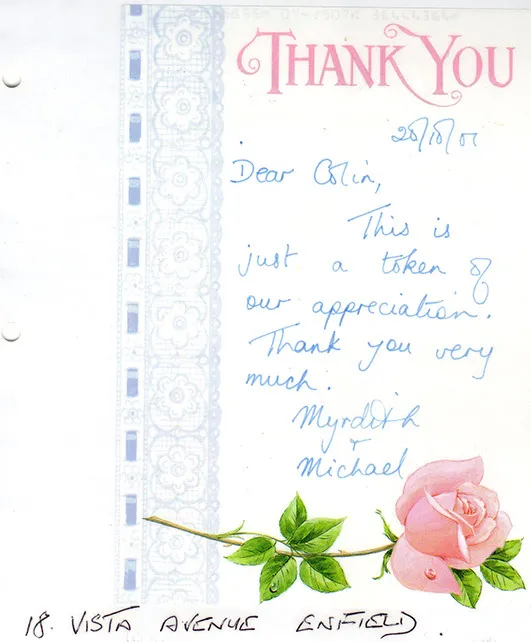 THANK YOU
28/10/01
Dear Colin,
This is
just a token of
our appreciation.
Thank you very
much.
Myrdith
+
Michael
18. VISTA AVENUE ENFIELD.